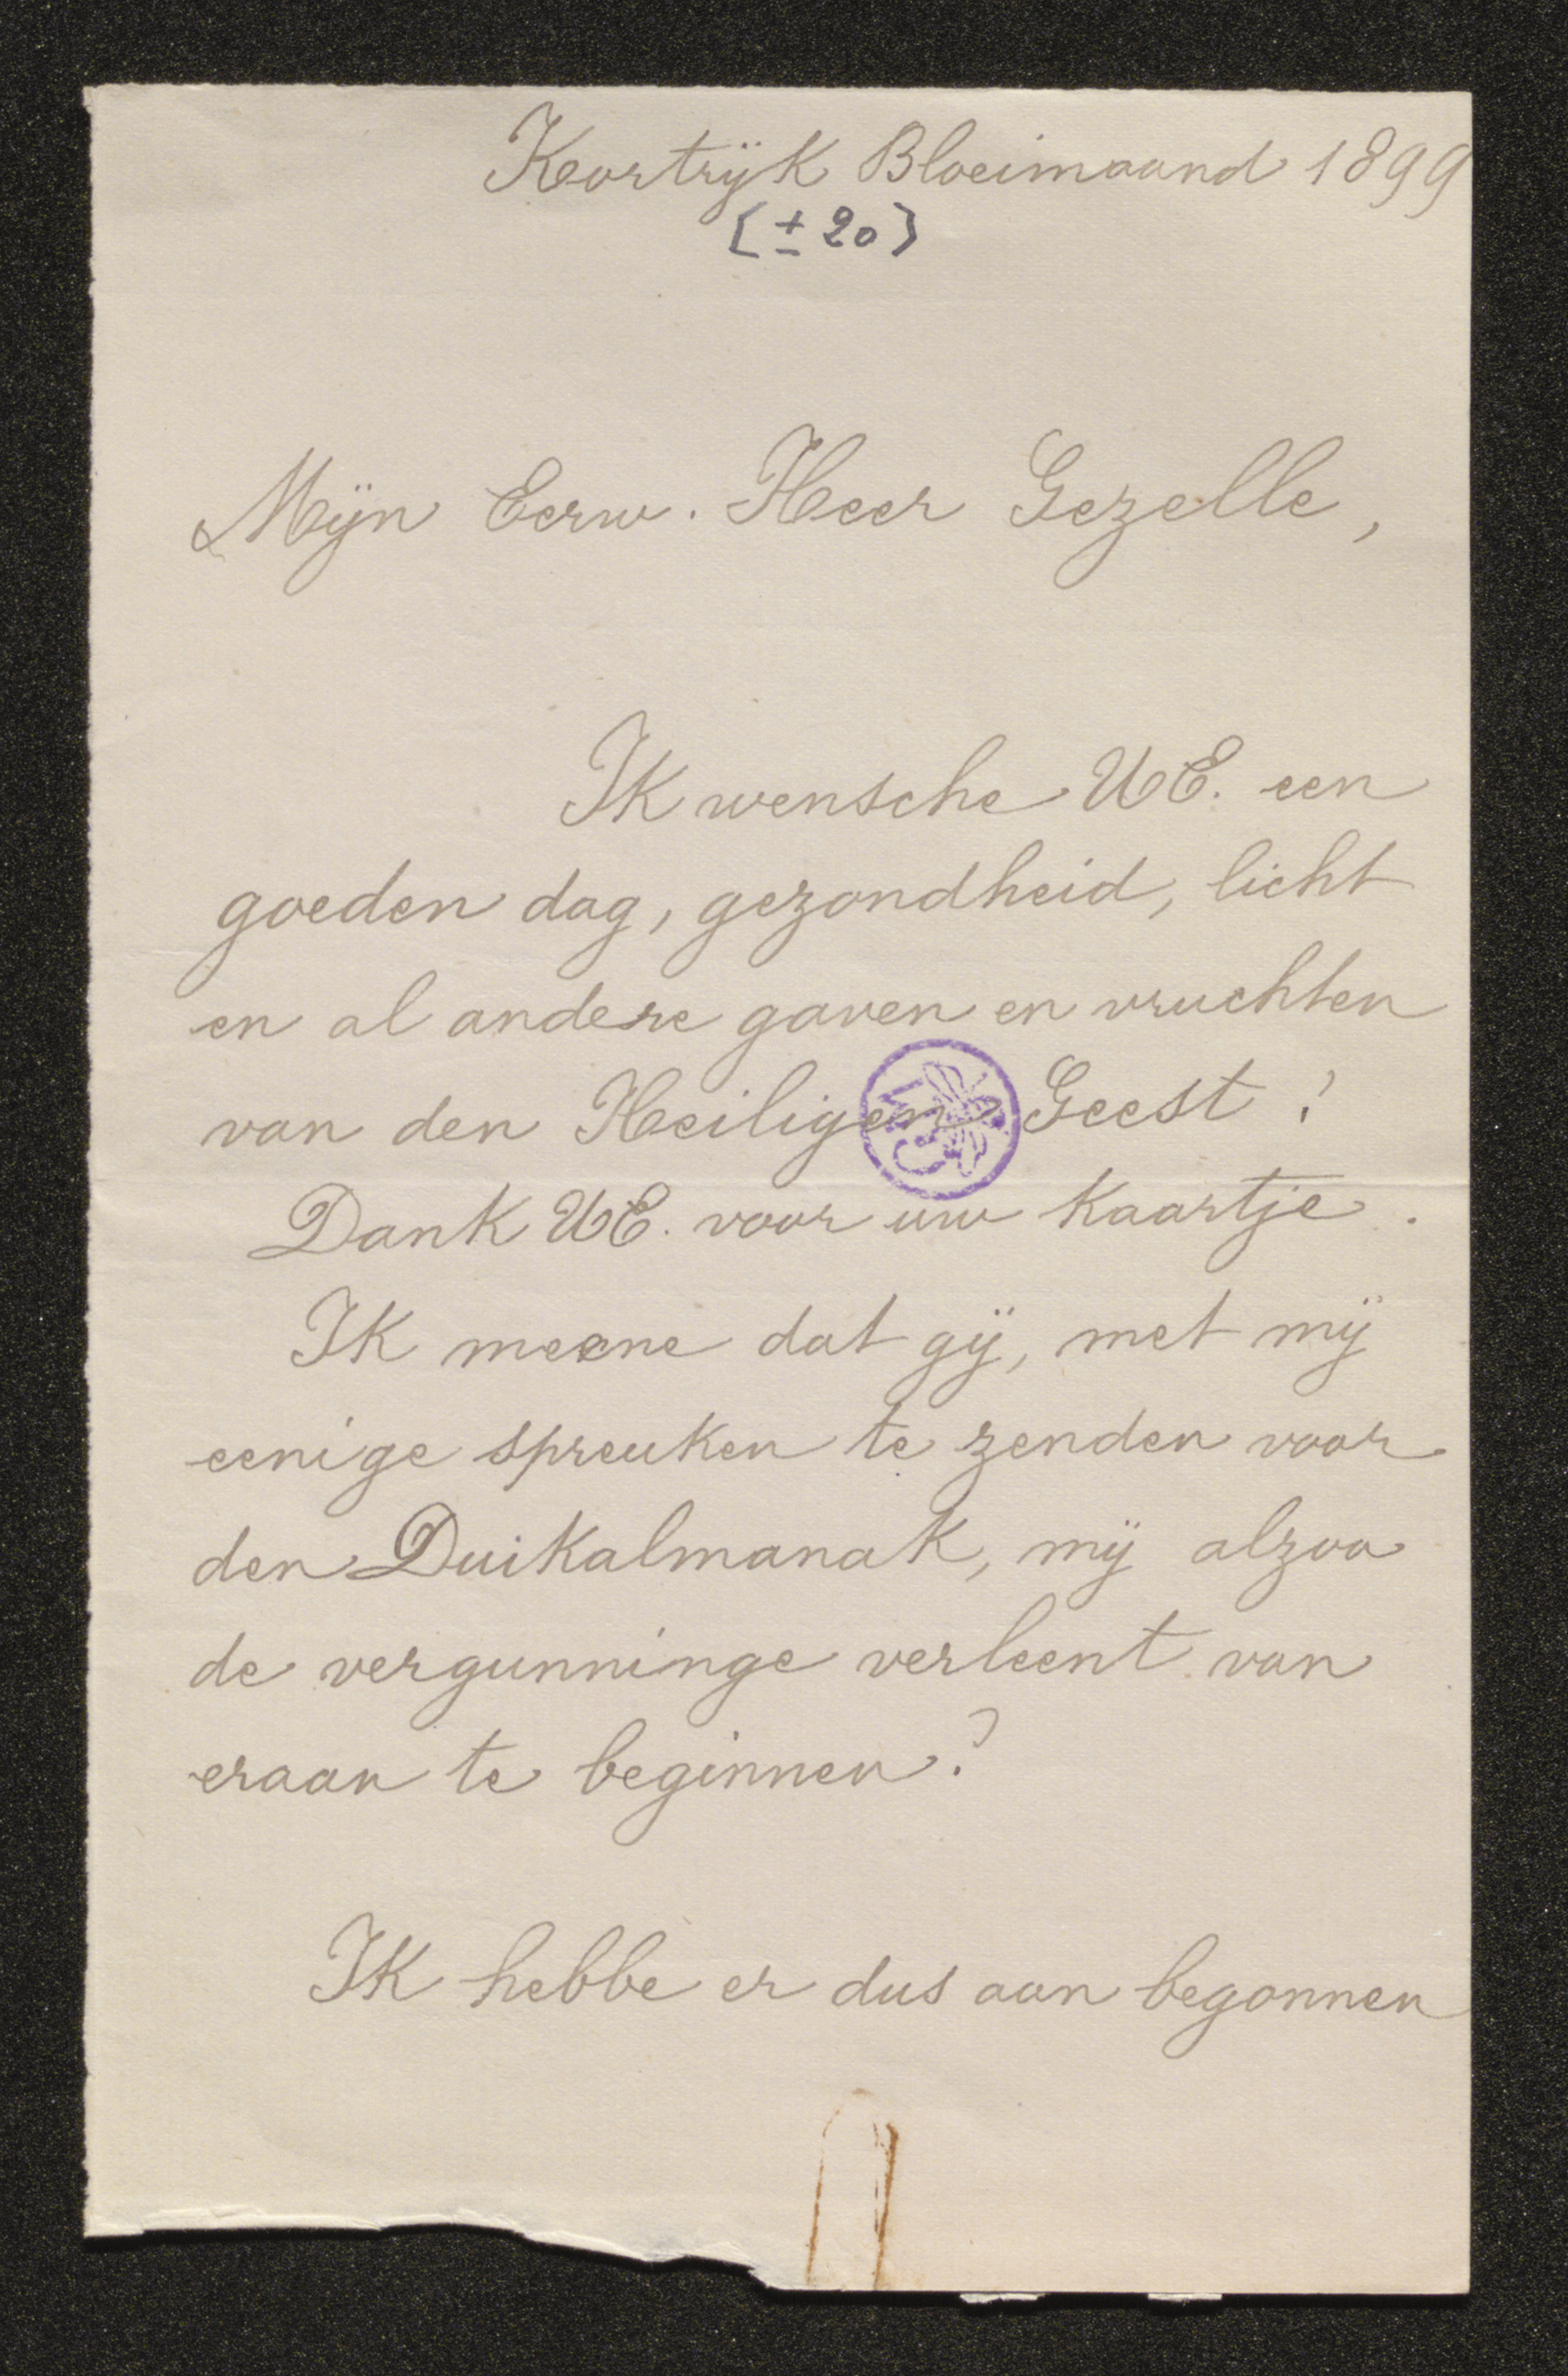 Kortrijk Bloeimaand 1899
[± 20]
Mijn Eerw. Heer Gezelle,
IK wensche UE. een
goeden dag, gezondheid, licht
en al andere gaven en vruchten
van den Heiligen Geest!
Dank UE. voor uw kaartje.
IK meene dat gij, met mij
eenige spreuken te zenden voor
den Duikalmanak, mij alzoo
de vergunninge verleent van
eraan te beginnen?
IK hebbe er dus aan begonnen